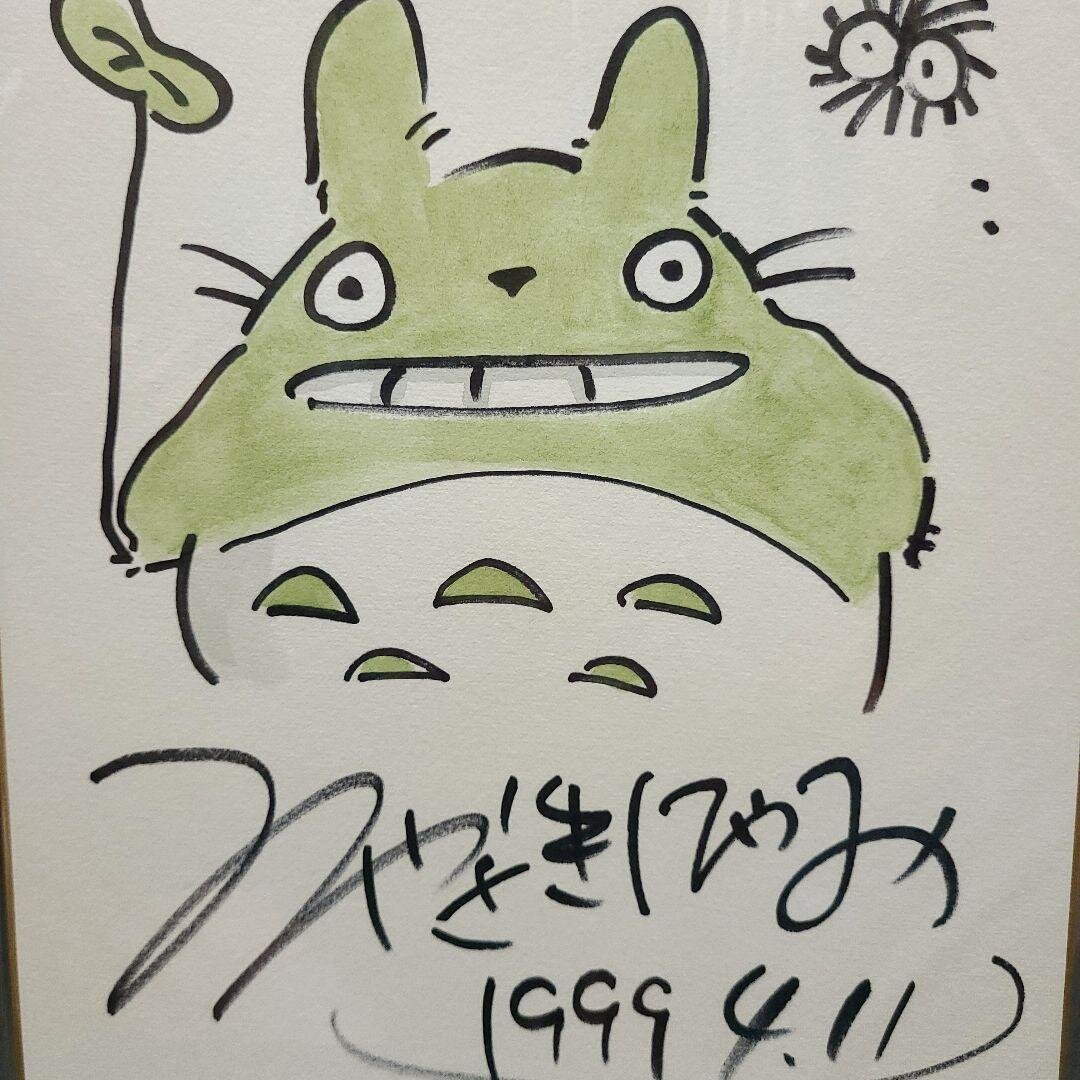 みやざきはやみ
1999 4.11